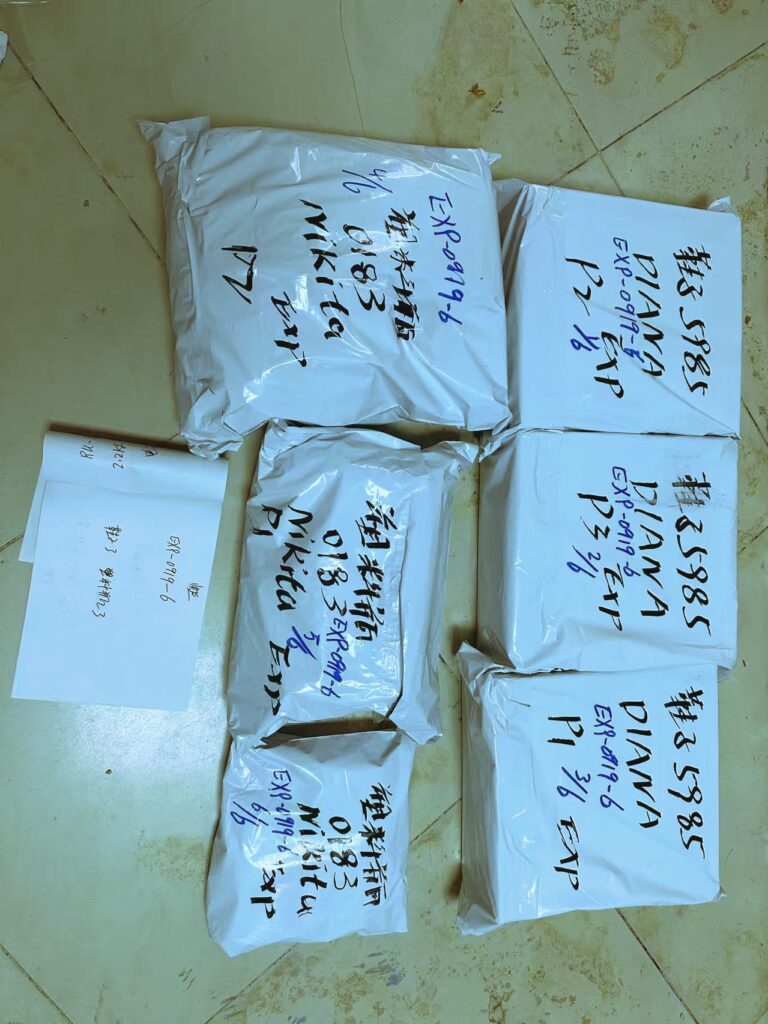 鞋子 5985
DIANA
EXP-0919-6
P2 1/6 EXP
鞋子 5985
DIANA
EXP-0919-6
P3 2/6 EXP
鞋子 5985
DIANA
EXP-0919-6
P1 3/6 EXP
EXP-0919-6
4/6
塑料
0183
Nikita
EXP
P2
塑料
0183 EXP-0919-6
5/6
Nikita EXP
P1
塑料
0183
Nikita EXP
EXP-0919-6
6/6
鞋
EXP-0919-6
鞋子3 塑料